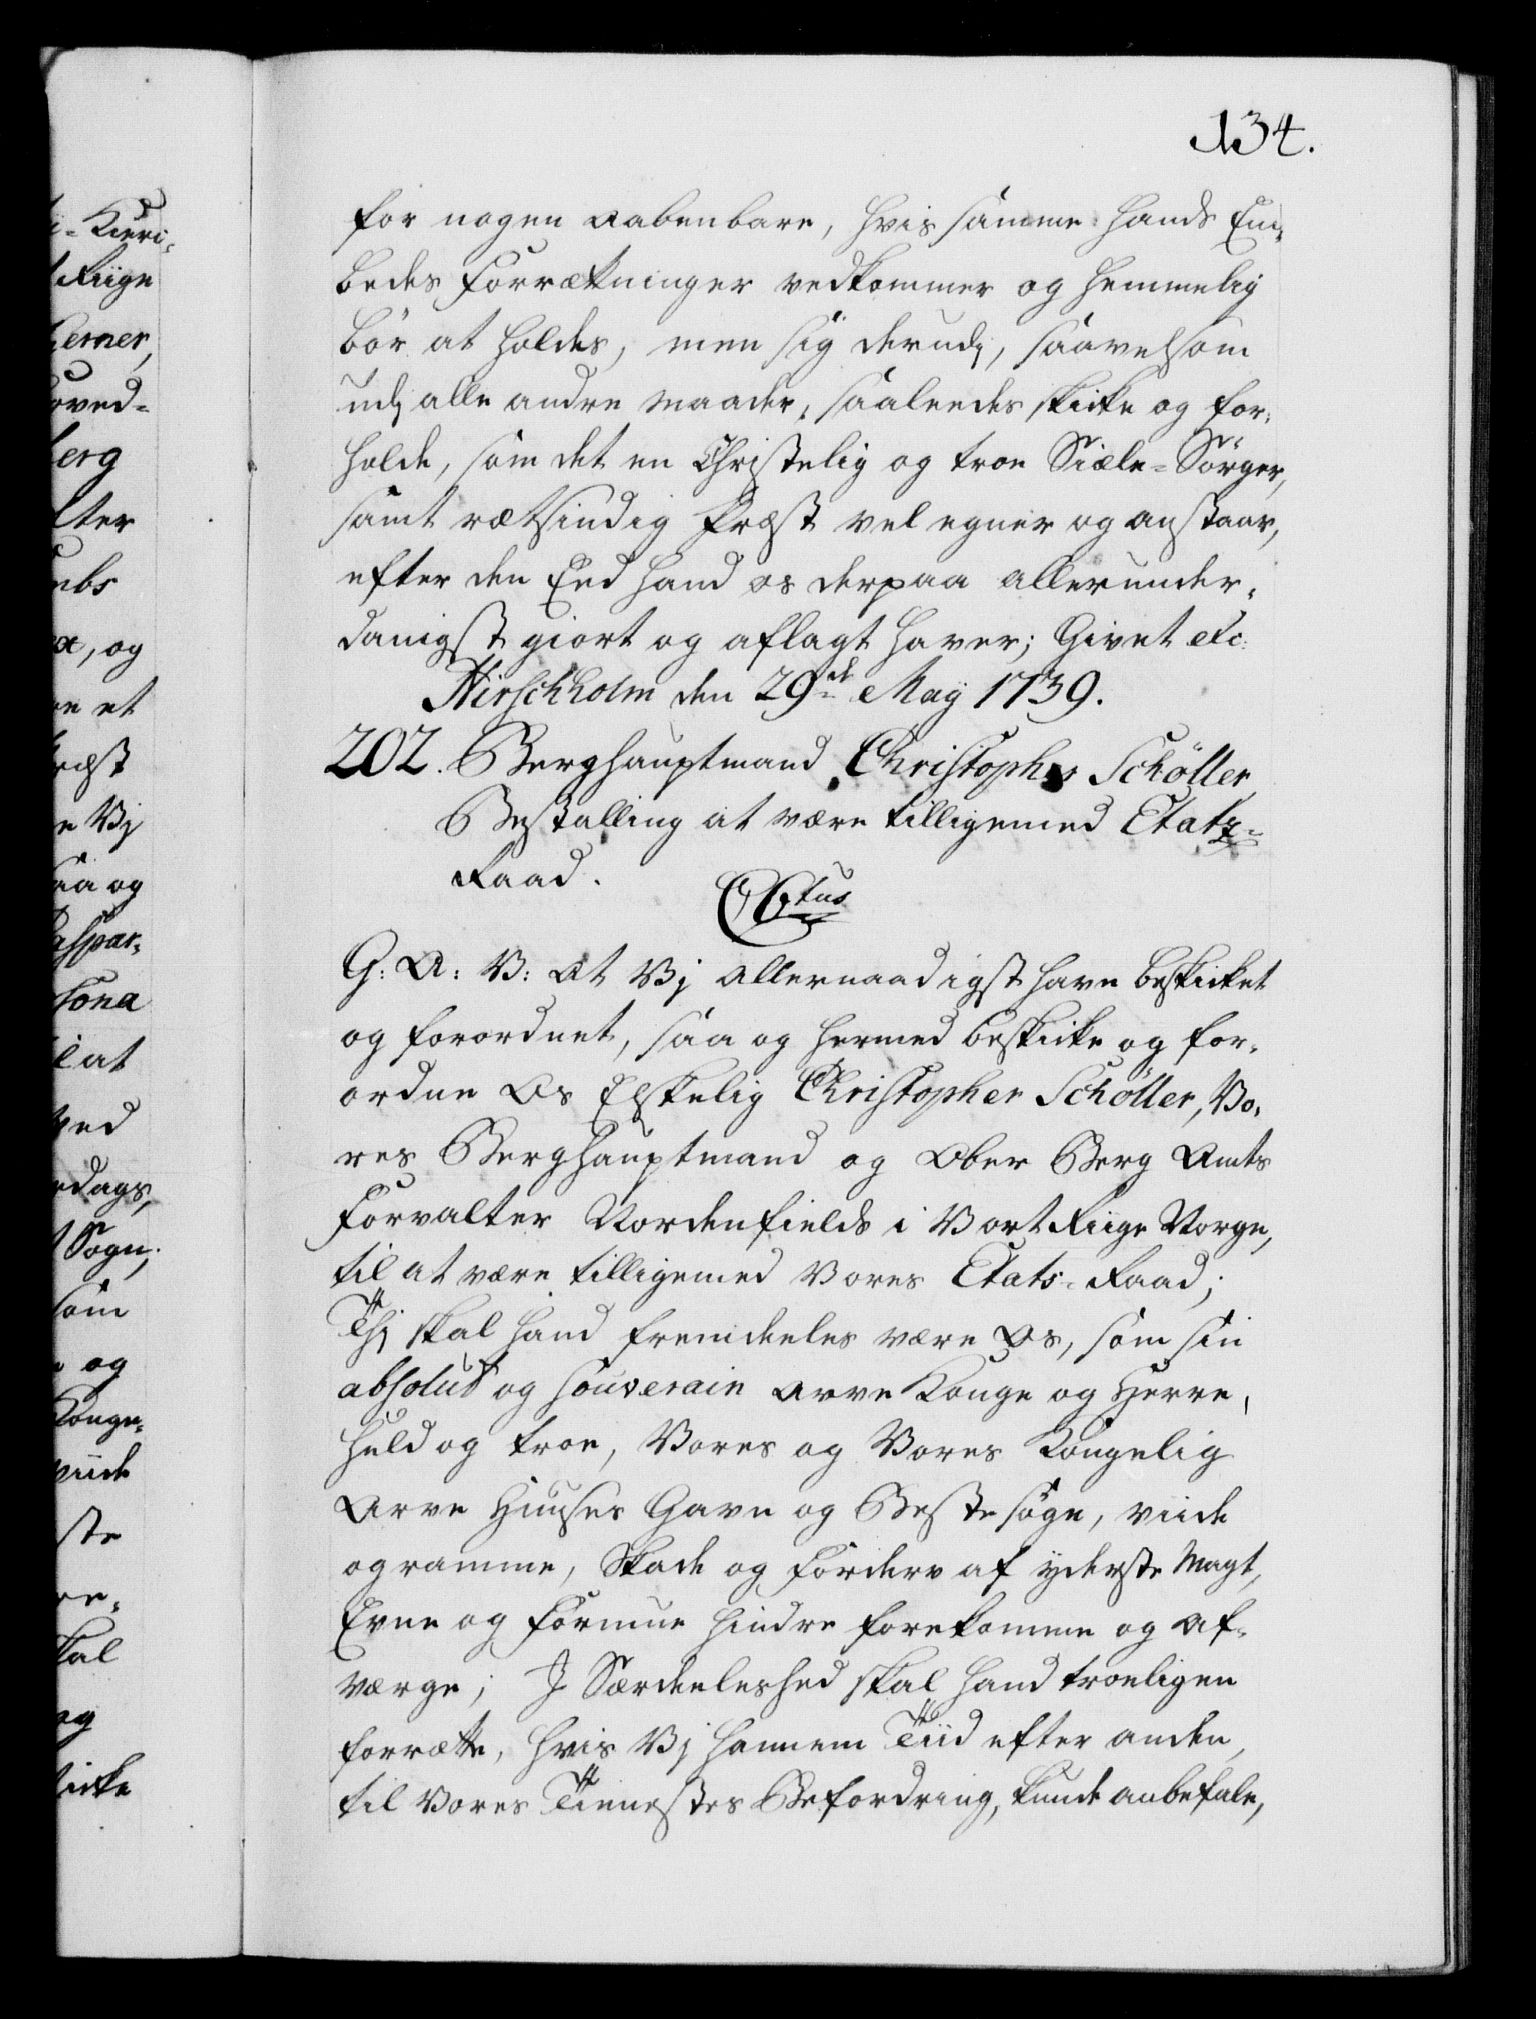 134.
for nogen aabenbare, hvis samme hands Em-
bedes Forrætninger vedkommer og hemmelig
bör at holdes, men sig derudj, saavelsom
udj alle andre maader, saaleedes skicke og for-
holde, som det en Christelig og troe Siæle-Sörger,
samt rætsindig Præst vel egner og anstaar,
efter den Eed hand os derpaa allerunder-
danigst giort og aflagt haver; Givet etc:
Hirschholm den 29de May 1739.
202. Berghauptmand Christopher Schöller
Bestalling at være tilligemed Etatz-
Raad.
C 6tus
G: A: V: At Vj allernaadigst have beskicket
og forordnet, saa og hermed beskicke og for-
ordne Os Elskelig Christopher Schöller, Vo-
res Berghauptmand og Ober Berg Amts
Forvalter Nordenfields i Vort Riige Norge,
til at være tilligemed Vores Etats-Raad;
Thj skal hand fremdeeles være Os, som sin
absolut og souverain Arve Konge og Herre,
huld og troe, Vores og Vores Kongelig
Arve Huuses Gavn og Beste söge, viide
og ramme, Skade og Forderv af yderste Magt,
Evne og Formue hindre forekomme og af-
værge; J Særdeeleshed skal hand troeligen
forrætte, hvis Vj hannem Tiid efter anden,
til Vores Tienestes Befordring, kunde anbefale,
-Kiéri-
Riige
Kerner,
oved-
erg
lter
ebs
og
et
ræst
Vj
aa og
aspar-
at
ved
edags,
Sogn;
som
og
Konge-
viide
ste
re-
kal
og
icke